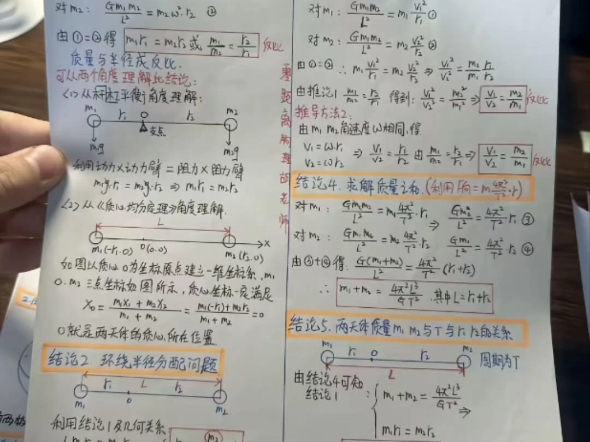 对m₂: Gm₁m₂/L² = m₂ω²·r₂ ②
由①=②得 m₁r₁=m₂r₂ 或 m₁/m₂=r₂/r₁ 反比
质量与半径成反比.
可从两个角度理解此结论:
<1>从杠杆平衡角度理解:
m₁ r₁ r₂ m₂
支点
m₁g m₂g
利用动力×动力臂=阻力×阻力臂
m₁g·r₁=m₂g·r₂ ⇒ m₁r₁=m₂r₂
<2>从《质心均分原理》角度理解.
L
m₁(-r₁.0) 0(0.0) m₂(r₂.0) x
如图以质心O为坐标原点建立一维坐标系, m₁
O.m₂三点坐标如图所示,质心坐标一定满足
X₀ = (m₁x₁+m₂x₂)/(m₁+m₂) = (m₁(-r₁)+m₂r₂)/(m₁+m₂) = 0
O就是两天体的质心所在位置
结论2 环绕半径分配问题
L
r₁ r₂
m₁ 0 m₂
利用结论1及几何关系
对m₁: Gm₁m₂/L² = m₁ v₁²/r₁ ①
对m₂: Gm₁m₂/L² = m₂ v₂²/r₂ ②
由①=② ∴ m₁ v₁²/r₁ = m₂ v₂²/r₂ ⇒ v₁²/v₂² = m₂/m₁ · r₁/r₂
由推论1 m₁/m₂=r₂/r₁ 得到: v₁²/v₂² = m₂²/m₁² ⇒ v₁/v₂ = m₂/m₁ 反比
推导方法2:
由m₁ m₂角速度ω相同,得
V₁=ωr₁
V₂=ωr₂ ⇒ v₁/v₂ = r₁/r₂ 由 m₁/m₂=r₂/r₁ ⇒ v₁/v₂ = m₂/m₁ 反比
结论4. 求解质量之和.(利用F向=m 4π²/T²·r)
对m₁: Gm₁m₂/L² = m₁ 4π²/T² · r₁ ⇒ Gm₂/L² = 4π²/T² r₁ ③
对m₂: Gm₁m₂/L² = m₂ 4π²/T² · r₂ Gm₁/L² = 4π²/T² r₂ ④
由③+④得: G(m₁+m₂)/L² = 4π²/T² (r₁+r₂)
∴ m₁+m₂ = 4π²L³/GT² .其中L=r₁+r₂
结论5. 两天体质量m₁ m₂与T与r₁ r₂的关系
m₁ r₁ 0 r₂ m₂ 周期为T
L
由结论4可知 m₁+m₂ = 4π²L³/GT² ⇒
结论1 :
m₁r₁=m₂r₂